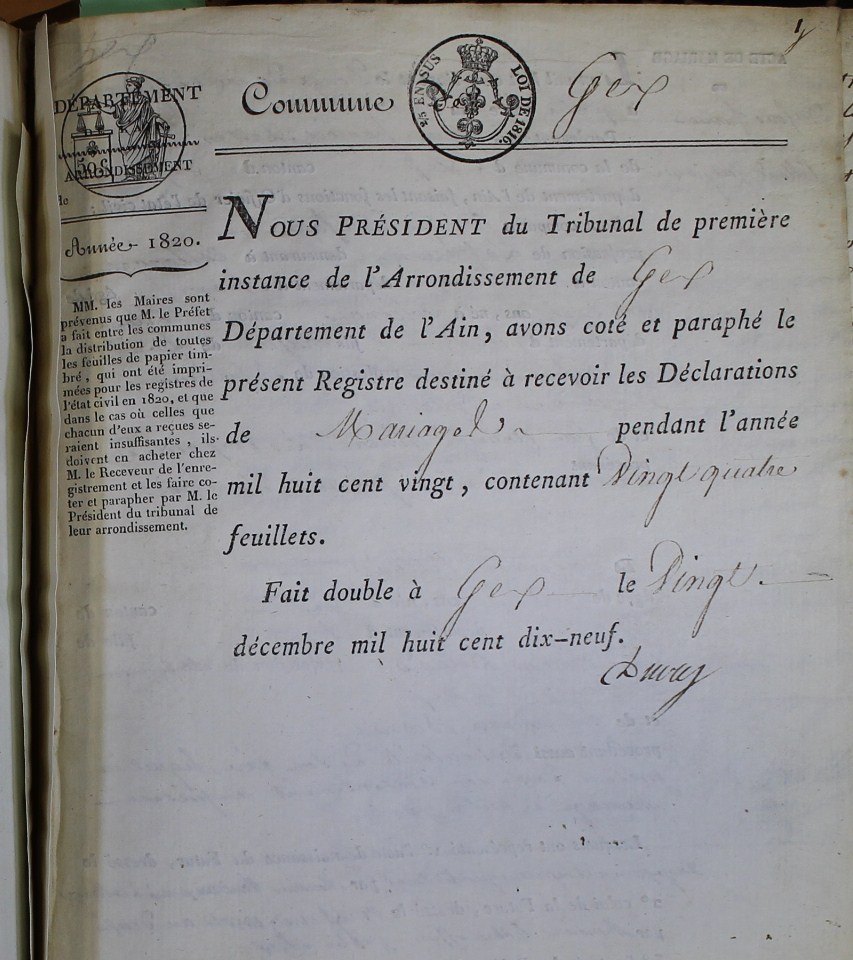 1
DÉPARTEMENT
50 c.
ARRONDISSEMENT
de
Année 1820.
MM. les Maires sont
prévenus que M. le Préfet
a fait entre les communes
la distribution de toutes
les feuilles de papier tim-
bré, qui ont été impri-
mées pour les registres de
l'état civil en 1820, et que
dans le cas où celles que
chacun d'eux a reçues se-
raient insuffisantes, ils
doivent en acheter chez
M. le Receveur de l'enre-
gistrement et les faire co-
ter et parapher par M. le
Président du tribunal de
leur arrondissement.
Commune de Gex
EN SUS
LOI DE 1816.
NOUS PRÉSIDENT du Tribunal de première
instance de l'Arrondissement de Gex
Département de l'Ain, avons coté et paraphé le
présent Registre destiné à recevoir les Déclarations
de Mariages pendant l'année
mil huit cent vingt, contenant Vingt quatre
feuillets.
Fait double à Gex le Vingt
décembre mil huit cent dix-neuf.